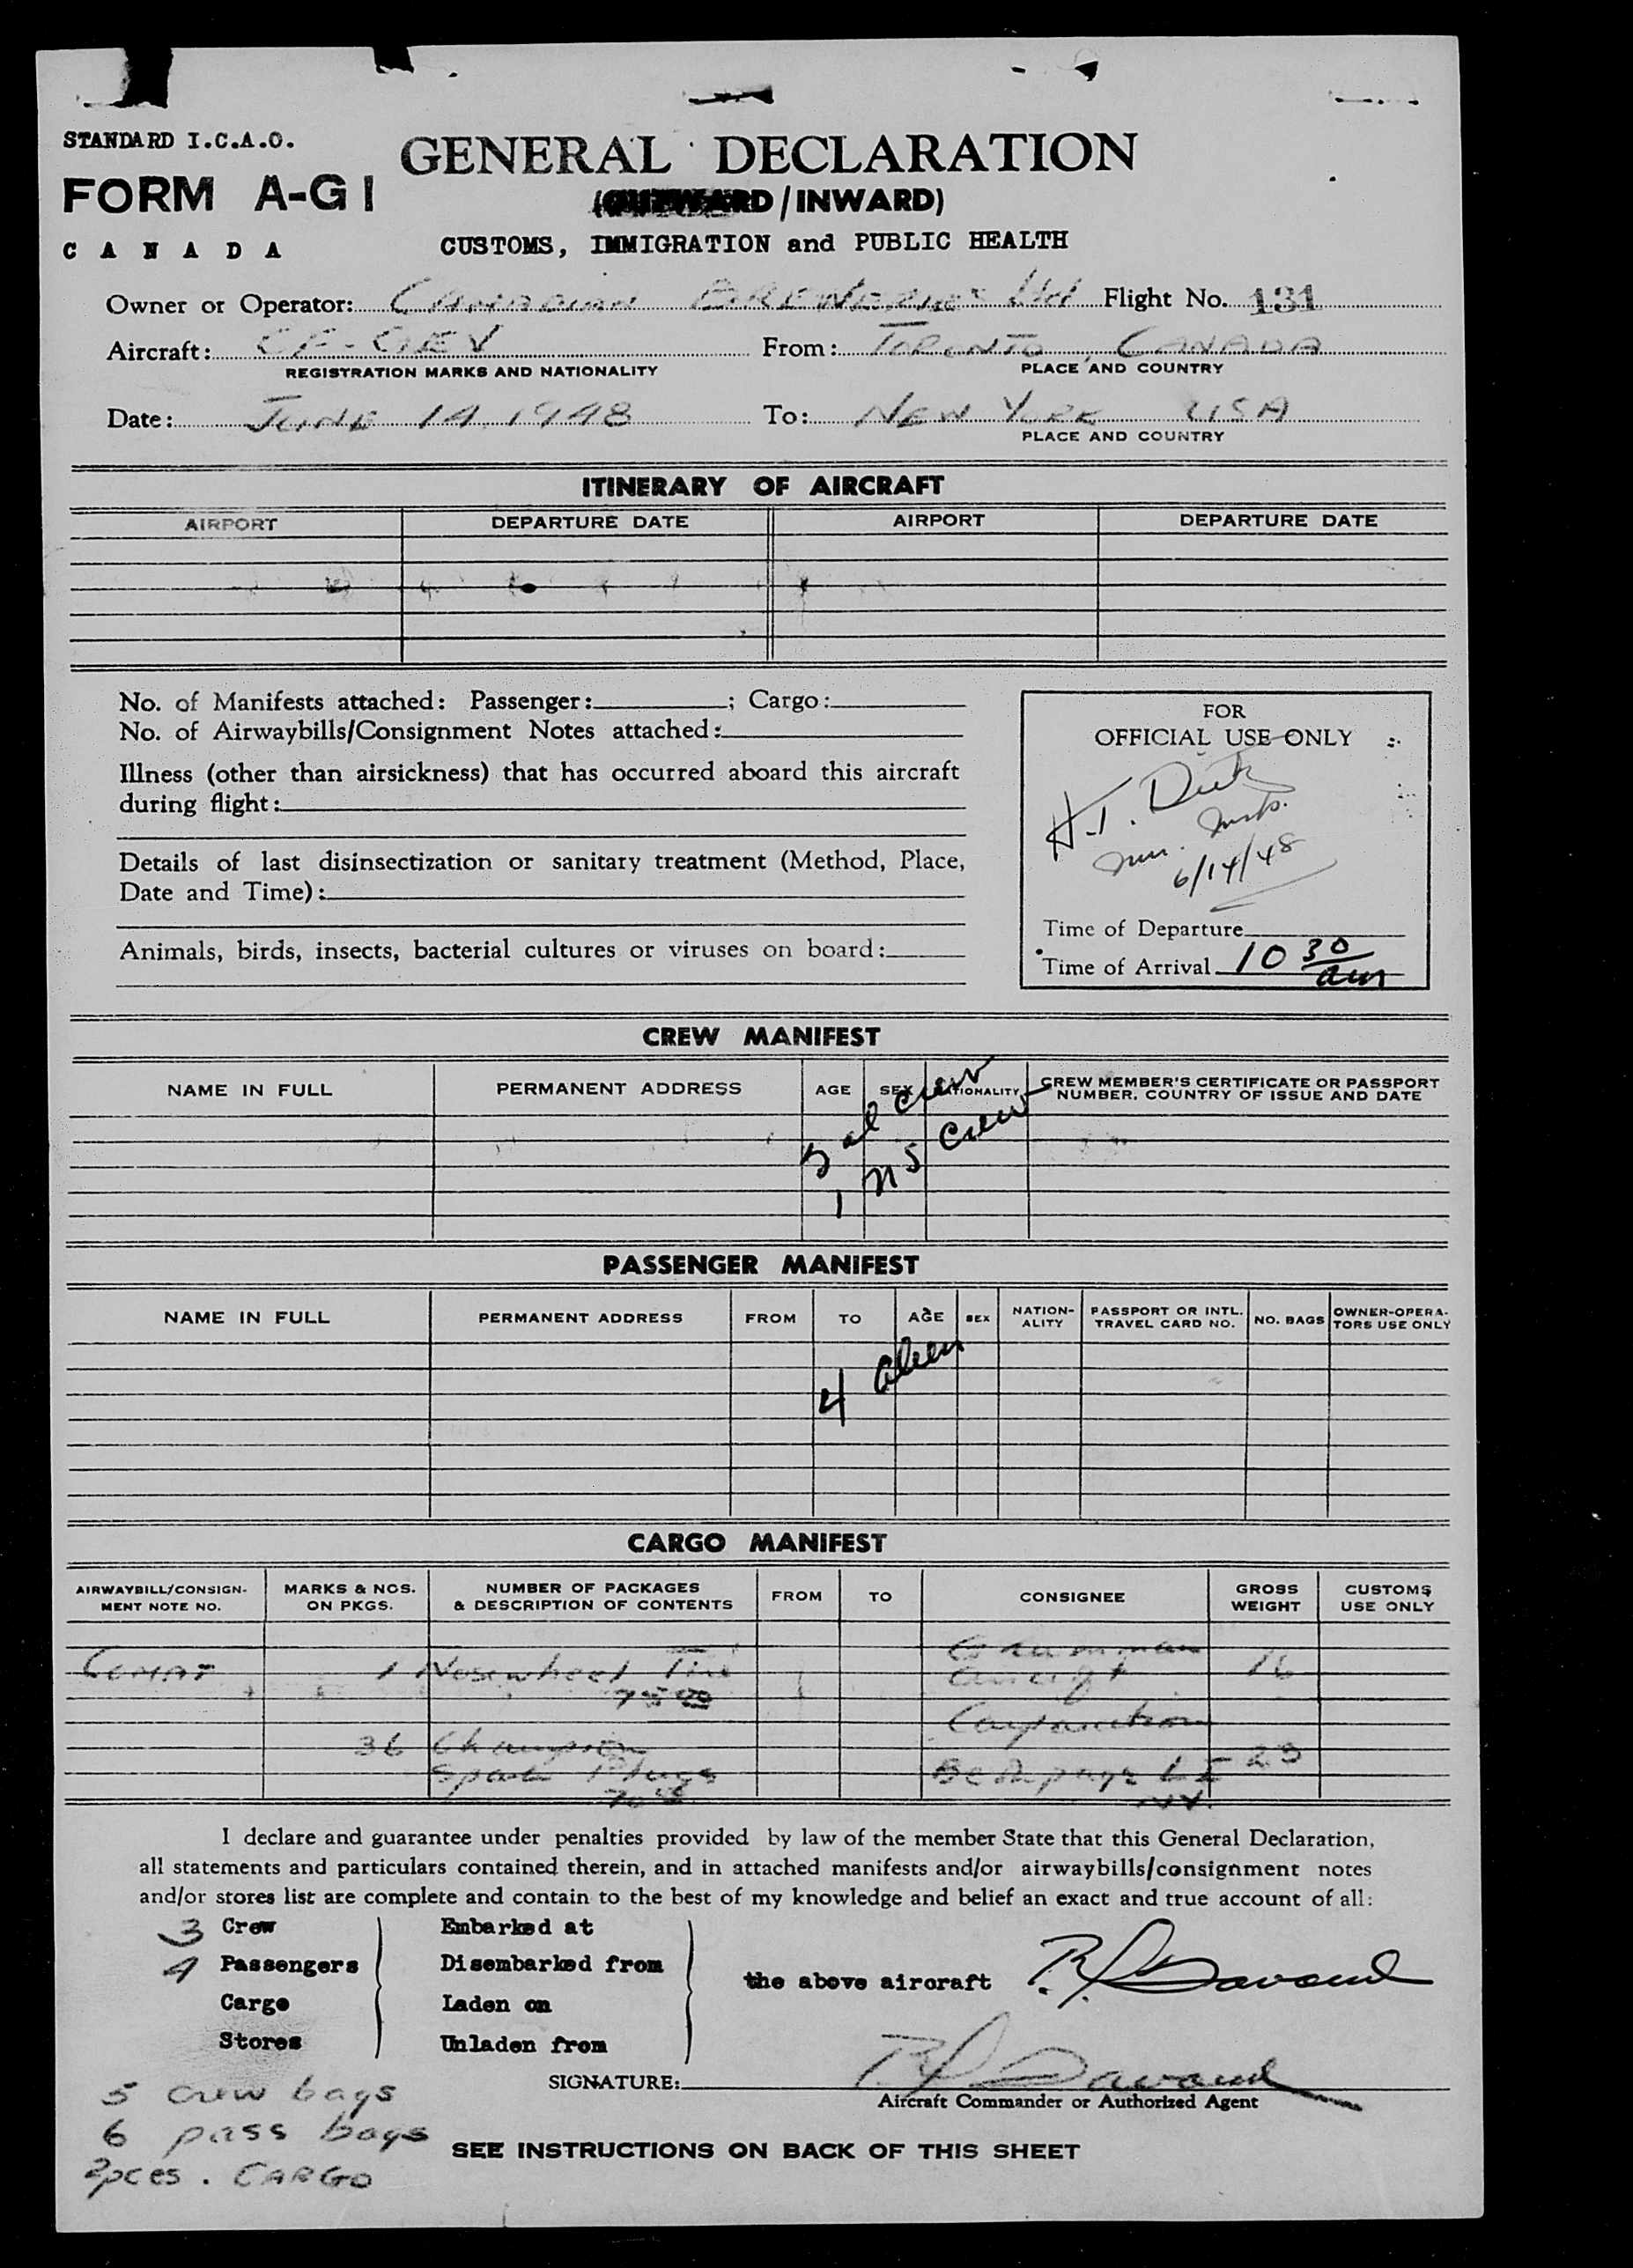 STANDARD I.C.A.O.
FORM A-G1
CANADA
GENERAL DECLARATION
(OUTWARD/INWARD)
CUSTOMS, IMMIGRATION and PUBLIC HEALTH
Owner or Operator: CANADIAN BREWERIES Ltd Flight No. 131
Aircraft: CF-GEV From: TORONTO, CANADA
REGISTRATION MARKS AND NATIONALITY PLACE AND COUNTRY
Date: JUNE 14, 1948 To: NEW YORK USA
PLACE AND COUNTRY
ITINERARY OF AIRCRAFT
AIRPORT DEPARTURE DATE AIRPORT DEPARTURE DATE
No. of Manifests attached: Passenger: ; Cargo:
No. of Airwaybills/Consignment Notes attached:
Illness (other than airsickness) that has occurred aboard this aircraft
during flight:
Details of last disinsectization or sanitary treatment (Method, Place,
Date and Time):
Animals, birds, insects, bacterial cultures or viruses on board:
FOR
OFFICIAL USE ONLY
H.T.
6/14/48
Time of Departure
Time of Arrival 10 30 am
CREW MANIFEST
NAME IN FULL PERMANENT ADDRESS AGE SEX NATIONALITY CREW MEMBER'S CERTIFICATE OR PASSPORT
NUMBER, COUNTRY OF ISSUE AND DATE
al crew
1 NS Crew
PASSENGER MANIFEST
NAME IN FULL PERMANENT ADDRESS FROM TO AGE SEX NATION-
ALITY PASSPORT OR INTL.
TRAVEL CARD NO. NO. BAGS OWNER-OPERA-
TORS USE ONLY
4 alien
CARGO MANIFEST
AIRWAYBILL/CONSIGN-
MENT NOTE NO. MARKS & NOS.
ON PKGS. NUMBER OF PACKAGES
& DESCRIPTION OF CONTENTS FROM TO CONSIGNEE GROSS
WEIGHT CUSTOMS
USE ONLY
COMAT 1 Nosewheel Tire Grumman Aircraft 16
75 00
Corporation
36 Champion
Spark Plugs Bethpage L I 23
70 NY.
I declare and guarantee under penalties provided by law of the member State that this General Declaration,
all statements and particulars contained therein, and in attached manifests and/or airwaybills/consignment notes
and/or stores list are complete and contain to the best of my knowledge and belief an exact and true account of all:
3 Crew Embarked at
4 Passengers Disembarked from
the above aircraft
Cargo Laden on
Stores Unladen from
SIGNATURE:
Aircraft Commander or Authorized Agent
5 crew bags
6 pass bags
2pces. CARGO
SEE INSTRUCTIONS ON BACK OF THIS SHEET